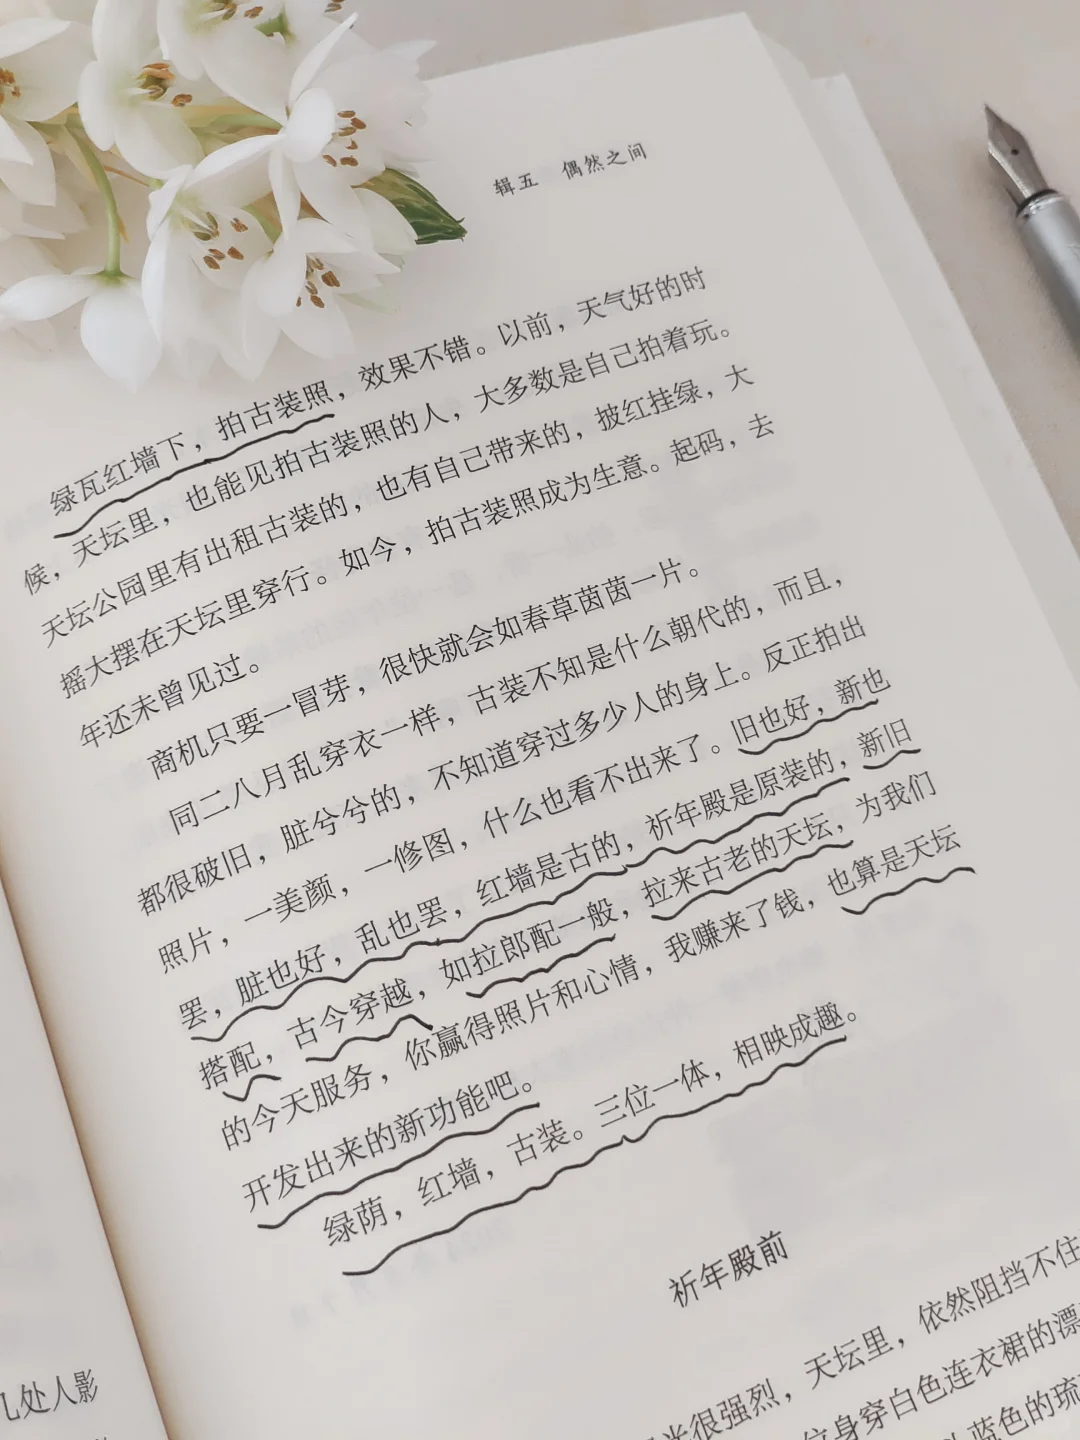 辑五 偶然之间
绿瓦红墙下，拍古装照，效果不错。以前，天气好的时
候，天坛里，也能见拍古装照的人，大多数是自己拍着玩。
天坛公园里有出租古装的，也有自己带来的，披红挂绿，大
摇大摆在天坛里穿行。如今，拍古装照成为生意。起码，去
年还未曾见过。
商机只要一冒芽，很快就会如春草茵茵一片。
同二八月乱穿衣一样，古装不知是什么朝代的，而且，
都很破旧，脏兮兮的，不知道穿过多少人的身上。反正拍出
照片，一美颜，一修图，什么也看不出来了。旧也好，新也
罢，脏也好，乱也罢，红墙是古的，祈年殿是原装的，新旧
搭配，古今穿越，如拉郎配一般，拉来古老的天坛，为我们
的今天服务，你赢得照片和心情，我赚来了钱，也算是天坛
开发出来的新功能吧。
绿荫，红墙，古装。三位一体，相映成趣。
祈年殿前
光很强烈，天坛里，依然阻挡不住
位身穿白色连衣裙的漂
蓝色的琉
几处人影